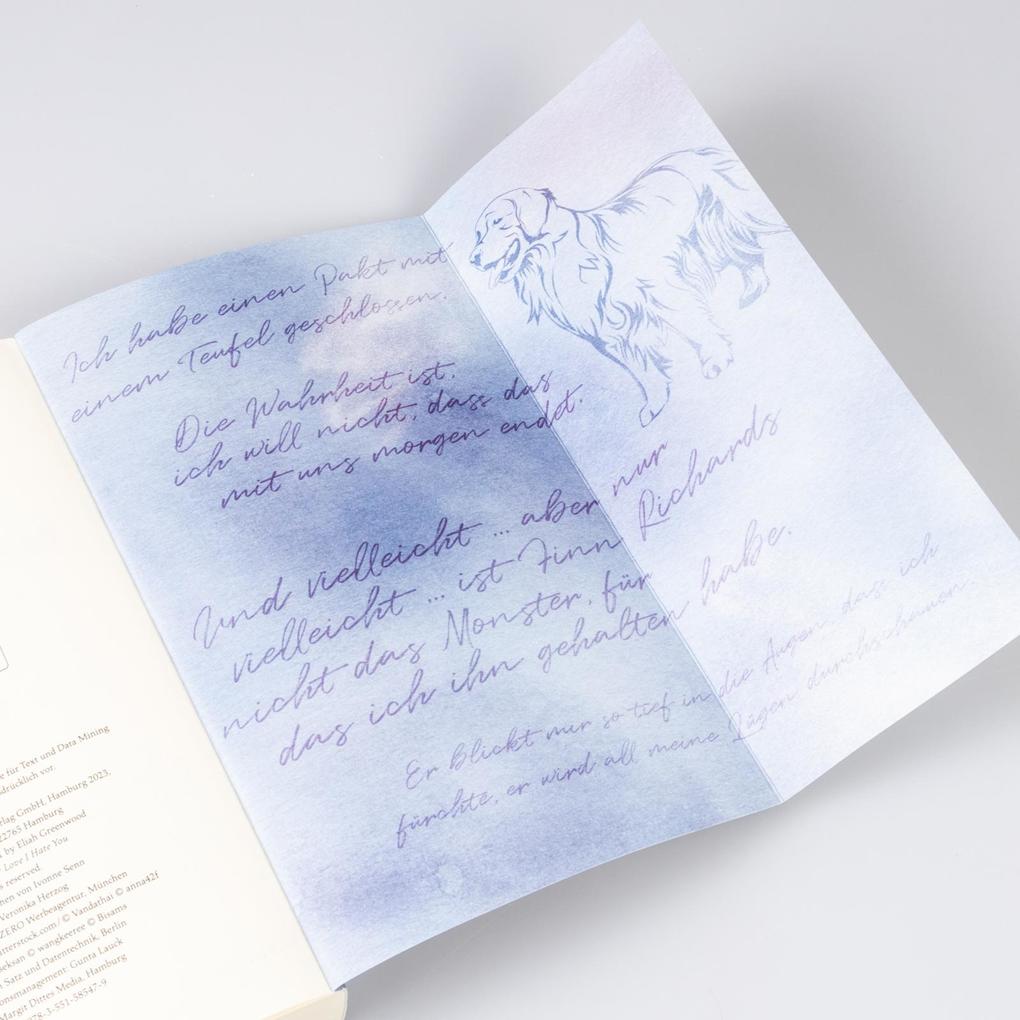 Ich habe einen Pakt mit
einem Teufel geschlossen.
Die Wahrheit ist,
ich will nicht, dass das
mit uns morgen endet.
Und vielleicht ... aber nur
vielleicht ... ist Finn Richards
nicht das Monster, für
das ich ihn gehalten habe.
Er blickt mir so tief in die Augen, dass ich
fürchte, er wird all meine Lügen durchschauen.
e für Text und Data Mining
drücklich vor.
rlag GmbH, Hamburg 2023,
22765 Hamburg
by Eliah Greenwood
Love I Hate You
s reserved.
hen von Ivonne Senn
Veronika Herzog
ZERO Werbeagentur, München
tterstock.com/ © Vandathai © anna42f
eksan © wangkeeree © Bisams
Satz und Datentechnik, Berlin
onsmanagement: Gunta Lauck
Margit Dittes Media, Hamburg
978-3-551-58547-9